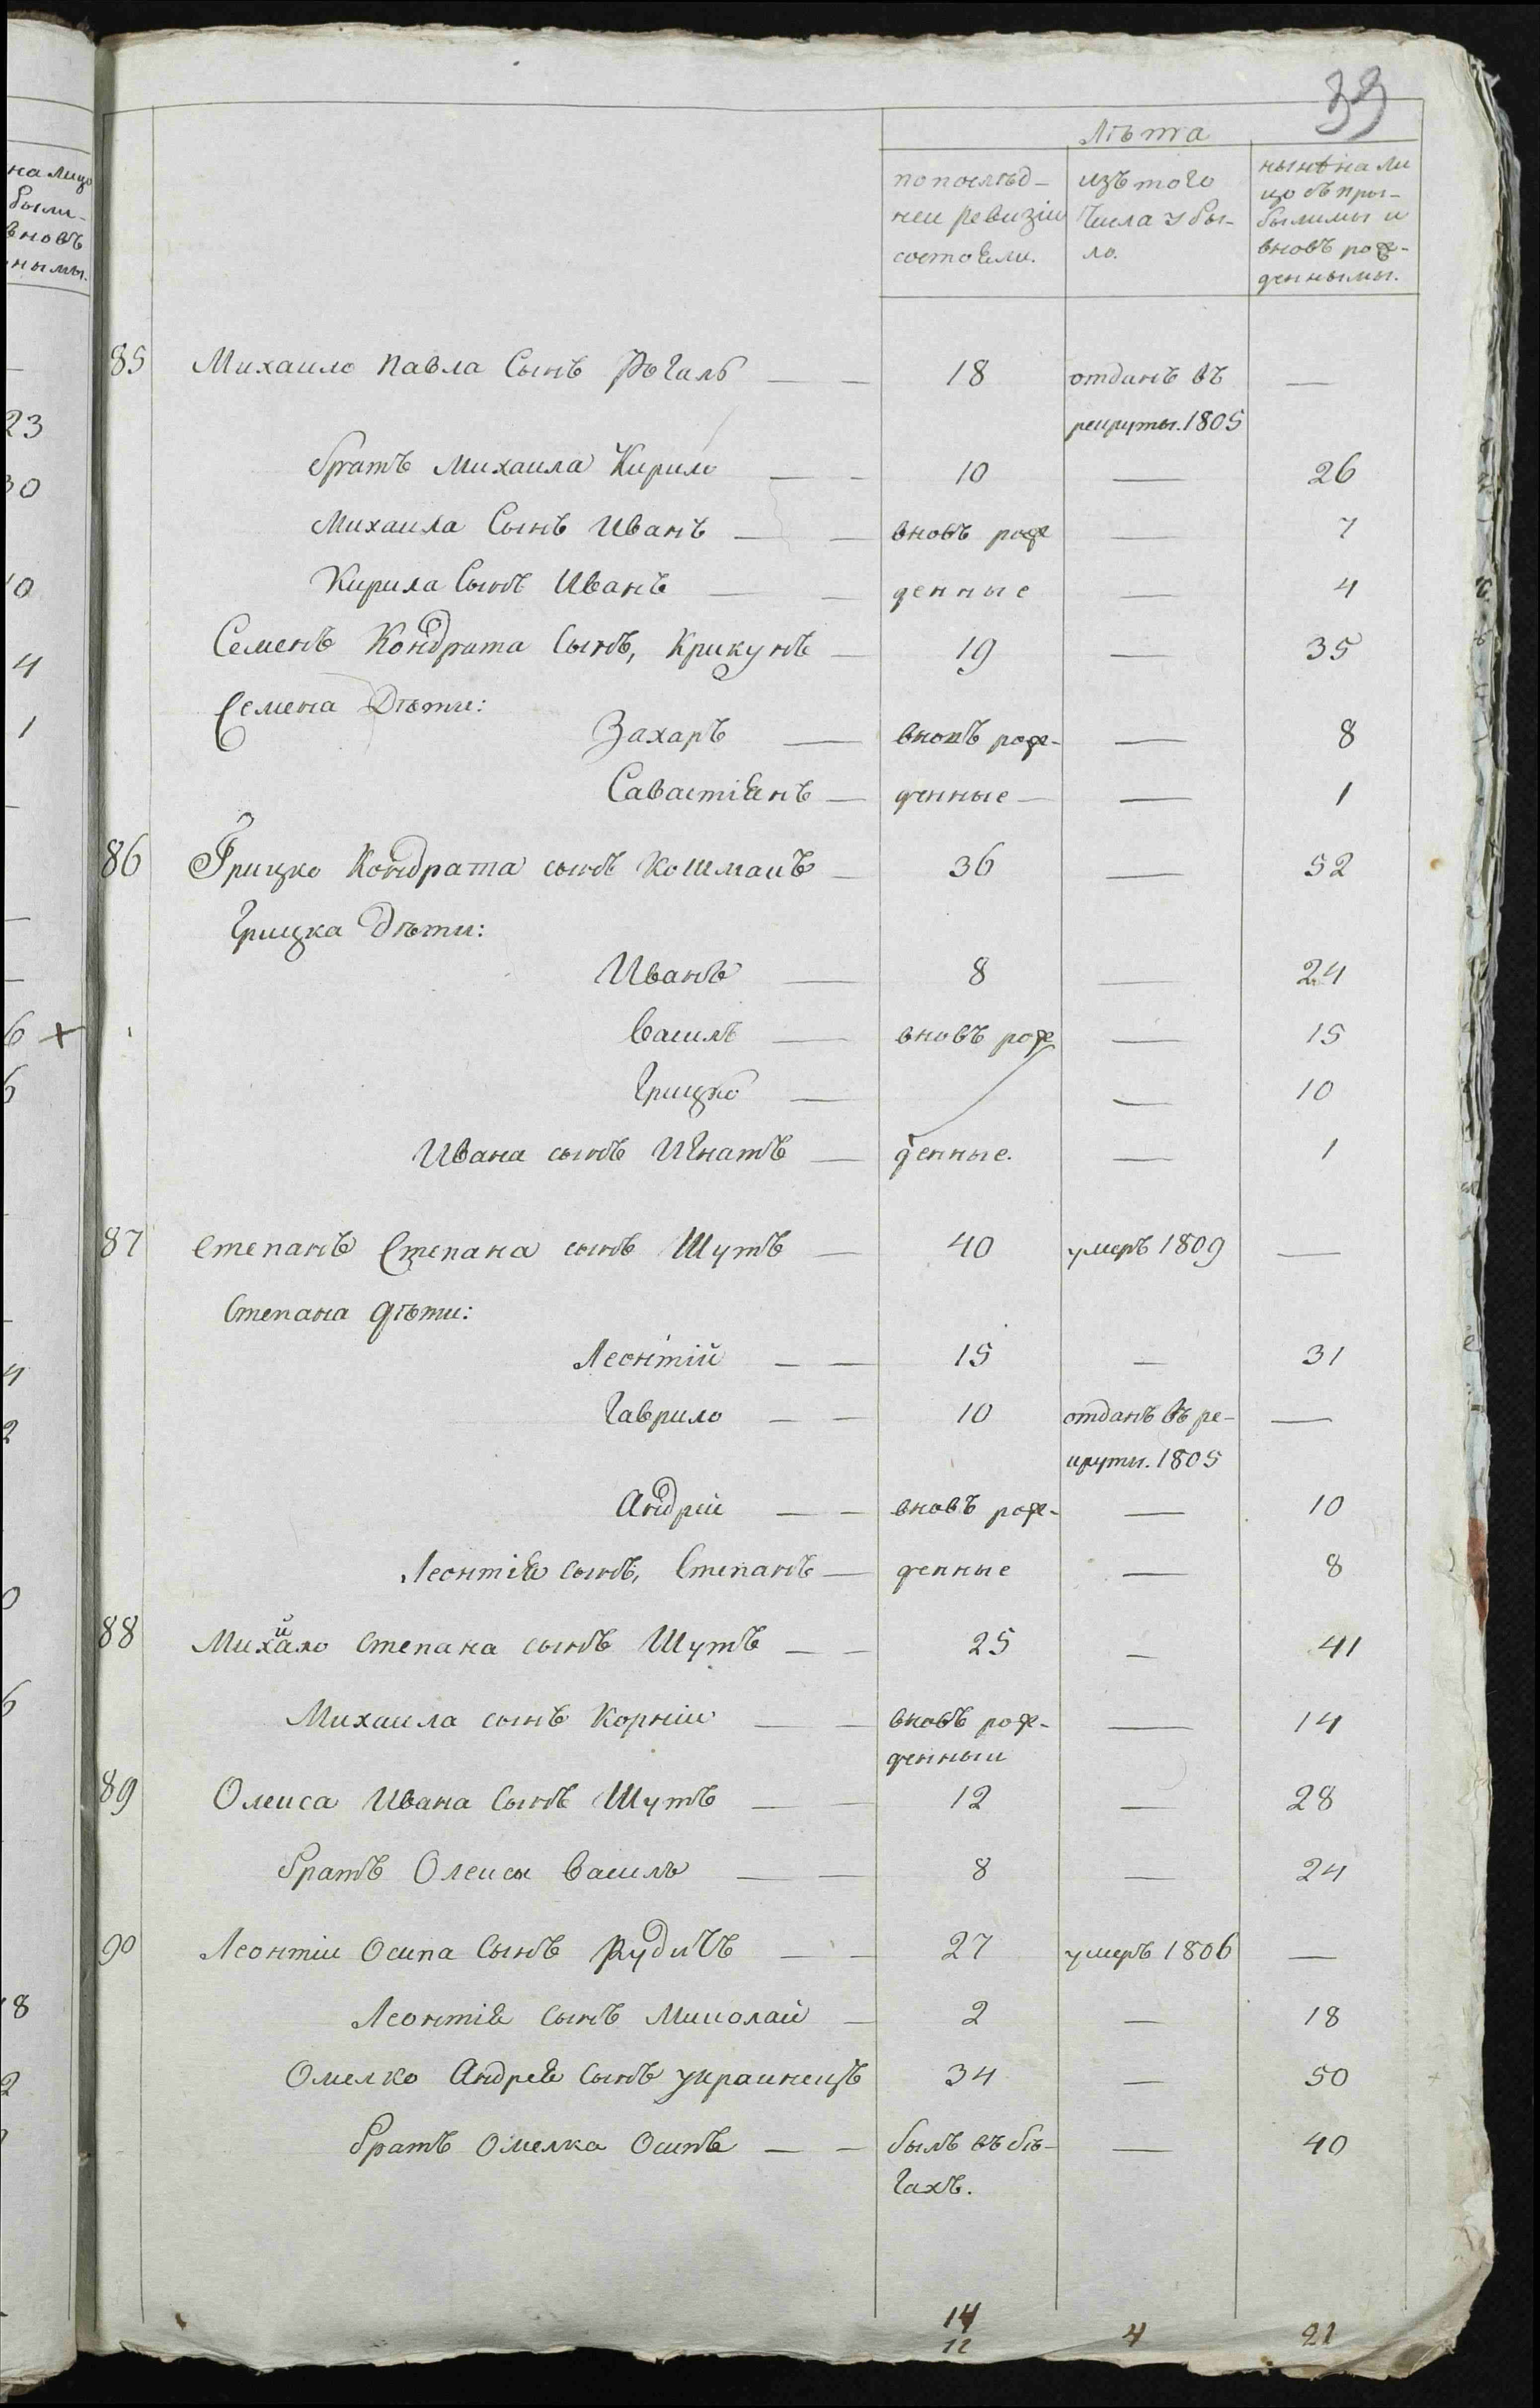 39
Лѣта
по послѣд-
неи ревизіи
состояли.
изъ того
числа убы-
ло.
нынѣ на ли
цо съ при-
былимы и
вновь рож-
денными.
85 Михаило Павла Сынъ — — 18 отданъ въ —
рекруты. 1805
братъ Михаила Кирило — — 10 — 26
Михаила Сынъ Иванъ — — вновь рож — 7
Кирила Сынъ Иванъ — — денные — 4
Семенъ Кондрата Сынъ, Крикунъ — 19 — 35
Семена Дѣти:
Захаръ — вновь рож- — 8
Савастіянъ — денные — — 1
86 Грицко Кондрата сынъ Кошманъ — 36 — 52
Грицка Дѣти:
Иванъ — 8 — 24
Василь — вновь рож — 15
Грицко — — 10
Ивана сынъ Игнатъ — денные. — 1
87 Степанъ Степана сынъ Шутъ — 40 умеръ 1809 —
Степана дѣти:
Леонтій — — 15 — 31
Гаврило — — 10 отданъ въ ре- —
круты. 1805
Андрій — — вновь рож- — 10
Леонтія сынъ, Степанъ — денные — 8
88 Михайло Степана сынъ Шутъ — — 25 — 41
Михаила сынъ Корній — — вновь рож- — 14
денный
89 Олекса Ивана Сынъ Шутъ — — 12 — 28
братъ Олексы Василь — — 8 — 24
90 Леонтіи Осипа Сынъ Рудичъ — — 27 умеръ 1806 —
Леонтія сынъ Миколай — 2 — 18
Омелко Андрея Сынъ Украинецъ 34 — 50
братъ Омелка Осипъ — — былъ въ бѣ- — 40
гахъ.
14 4 21
12
на лицо
были-
вновь
ными.
23
30
4
1
6 +